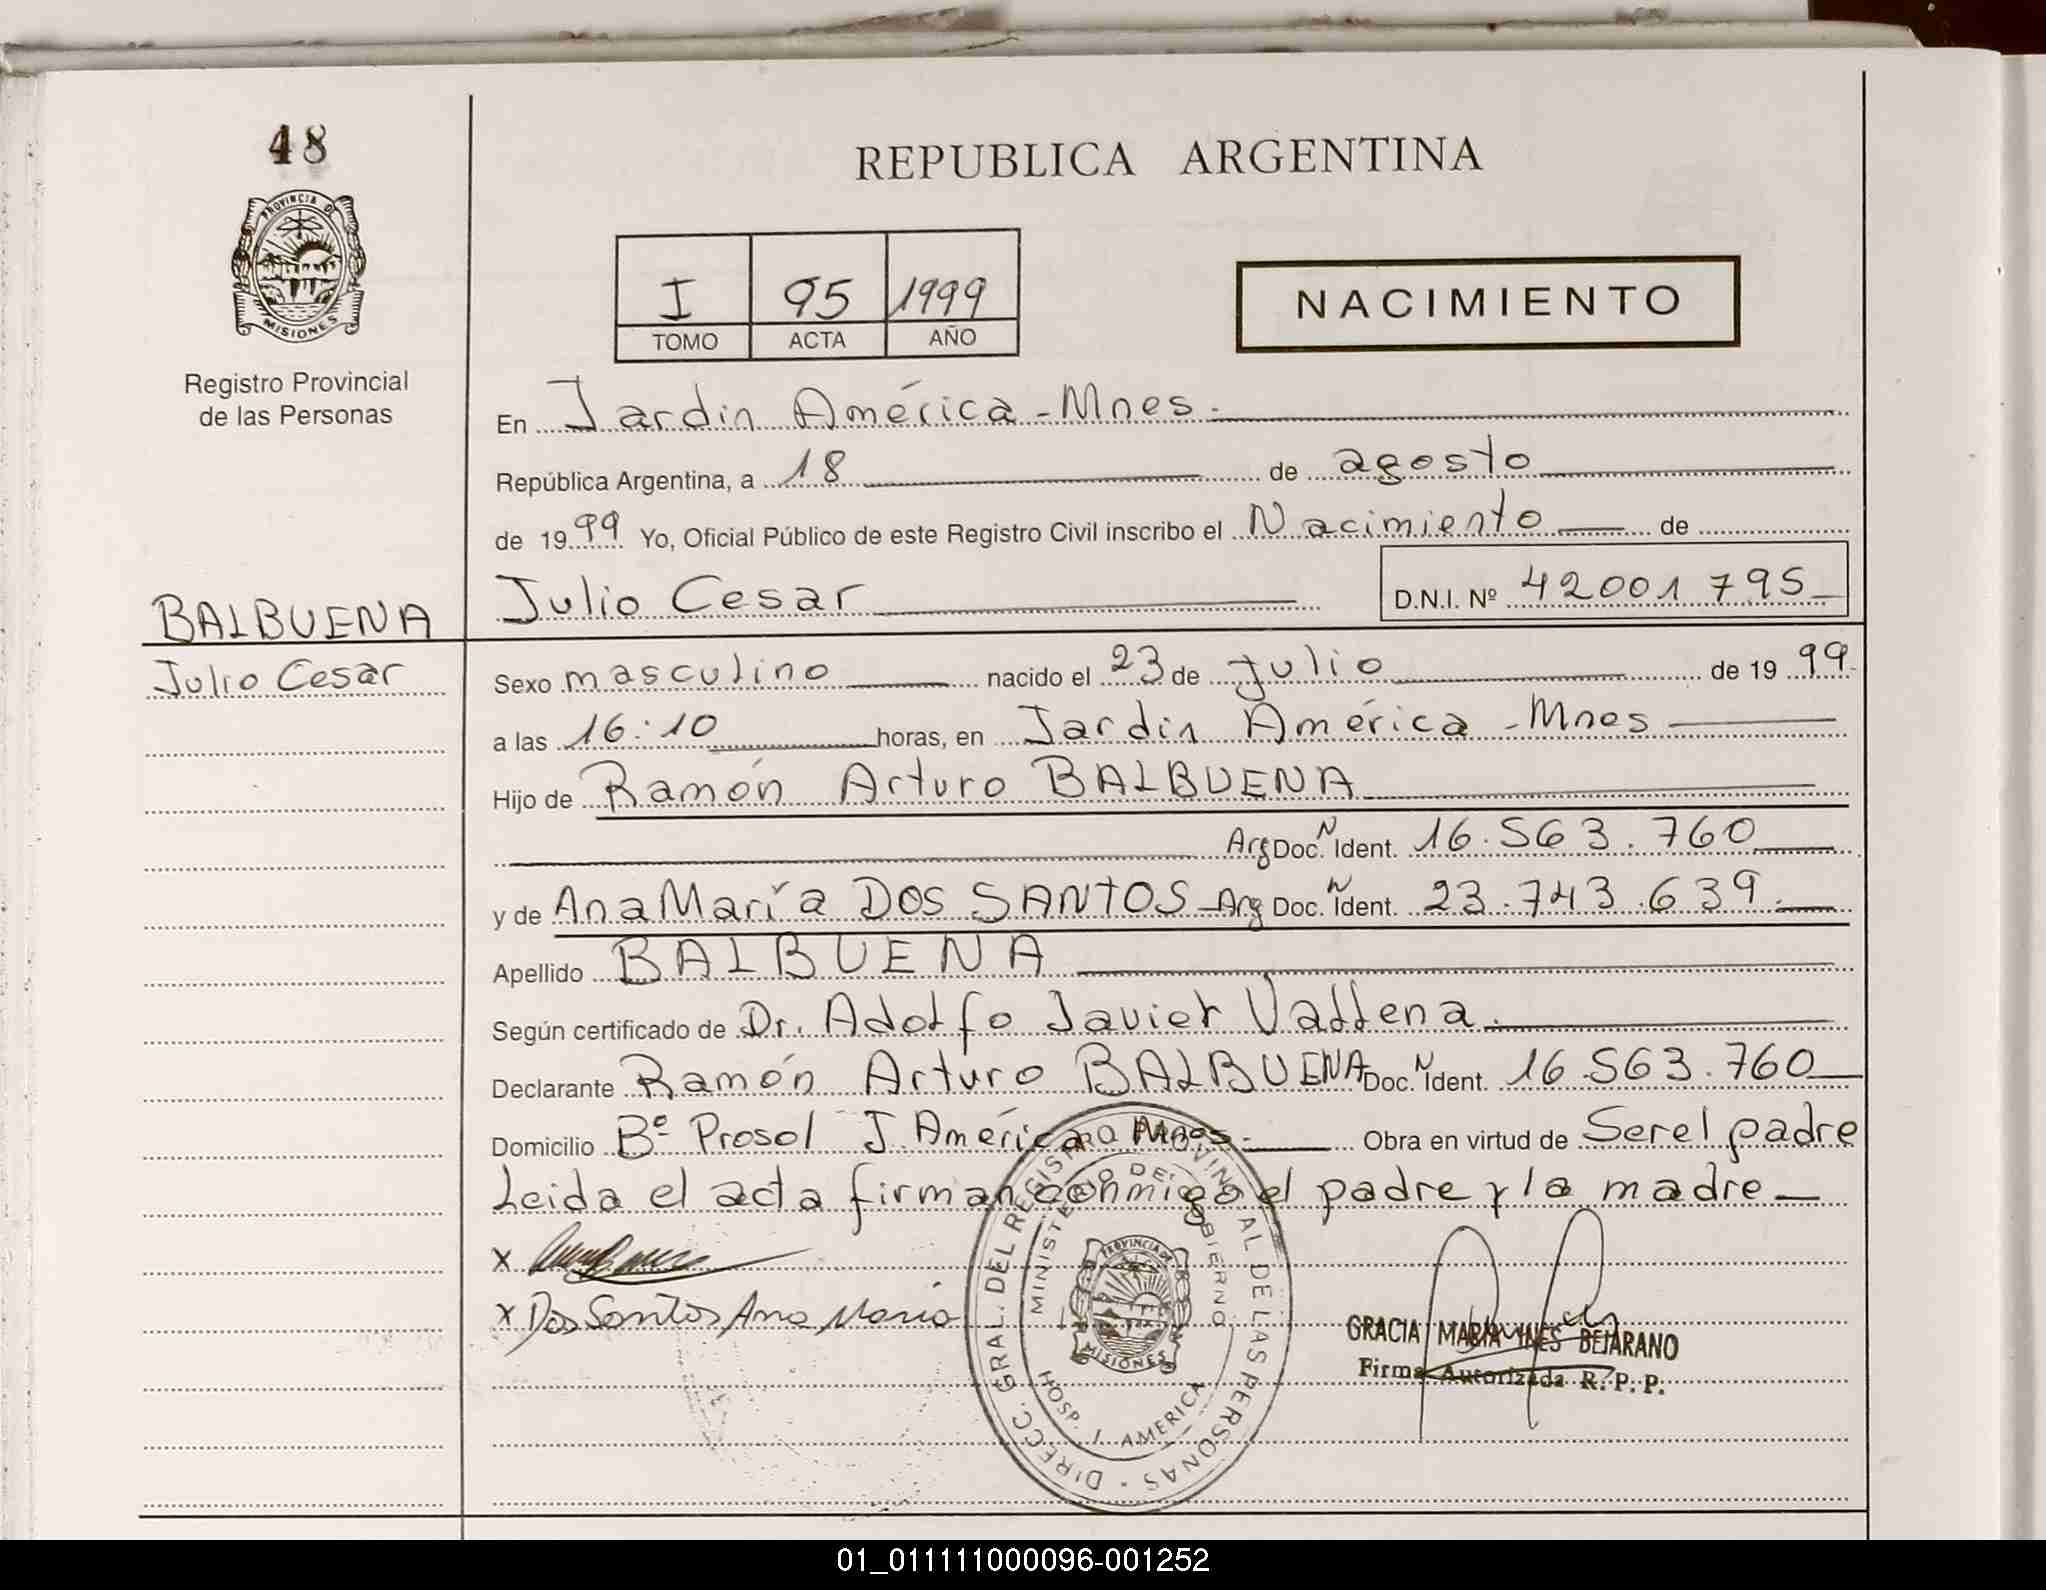 48
REPUBLICA ARGENTINA
PROVINCIA DE
MISIONES
Registro Provincial
de las Personas
I 95 1999
TOMO ACTA AÑO
NACIMIENTO
En Jardin América - Mnes.
República Argentina, a 18 de agosto
de 1999 Yo, Oficial Público de este Registro Civil inscribo el Nacimiento de
BALBUENA
Julio Cesar
Julio Cesar D.N.I. Nº 42001795
Sexo masculino nacido el 23 de julio de 1999
a las 16:10 horas, en Jardin América - Mnes
Hijo de Ramón Arturo BALBUENA
Arg Doc. N Ident. 16.563.760
y de Ana María DOS SANTOS - Arg Doc. N Ident. 23.743.639.
Apellido BALBUENA
Según certificado de Dr. Adolfo Javier Vallena.
Declarante Ramón Arturo BALBUENA Doc. N Ident. 16.563.760
Domicilio Bº Prosol J. América Mnes. Obra en virtud de Ser el padre
Leida el acta firman conmigo el padre y la madre
x
x Dos Santos Ana María
DIRECC. GRAL. DEL REGISTRO PROVINCIAL DE LAS PERSONAS
MINISTERIO DE GOBIERNO
PROVINCIA DE
MISIONES
HOSP. J. AMERICA
GRACIA MARIA INES BEJARANO
Firma Autorizada R. P. P.
01_011111000096-001252